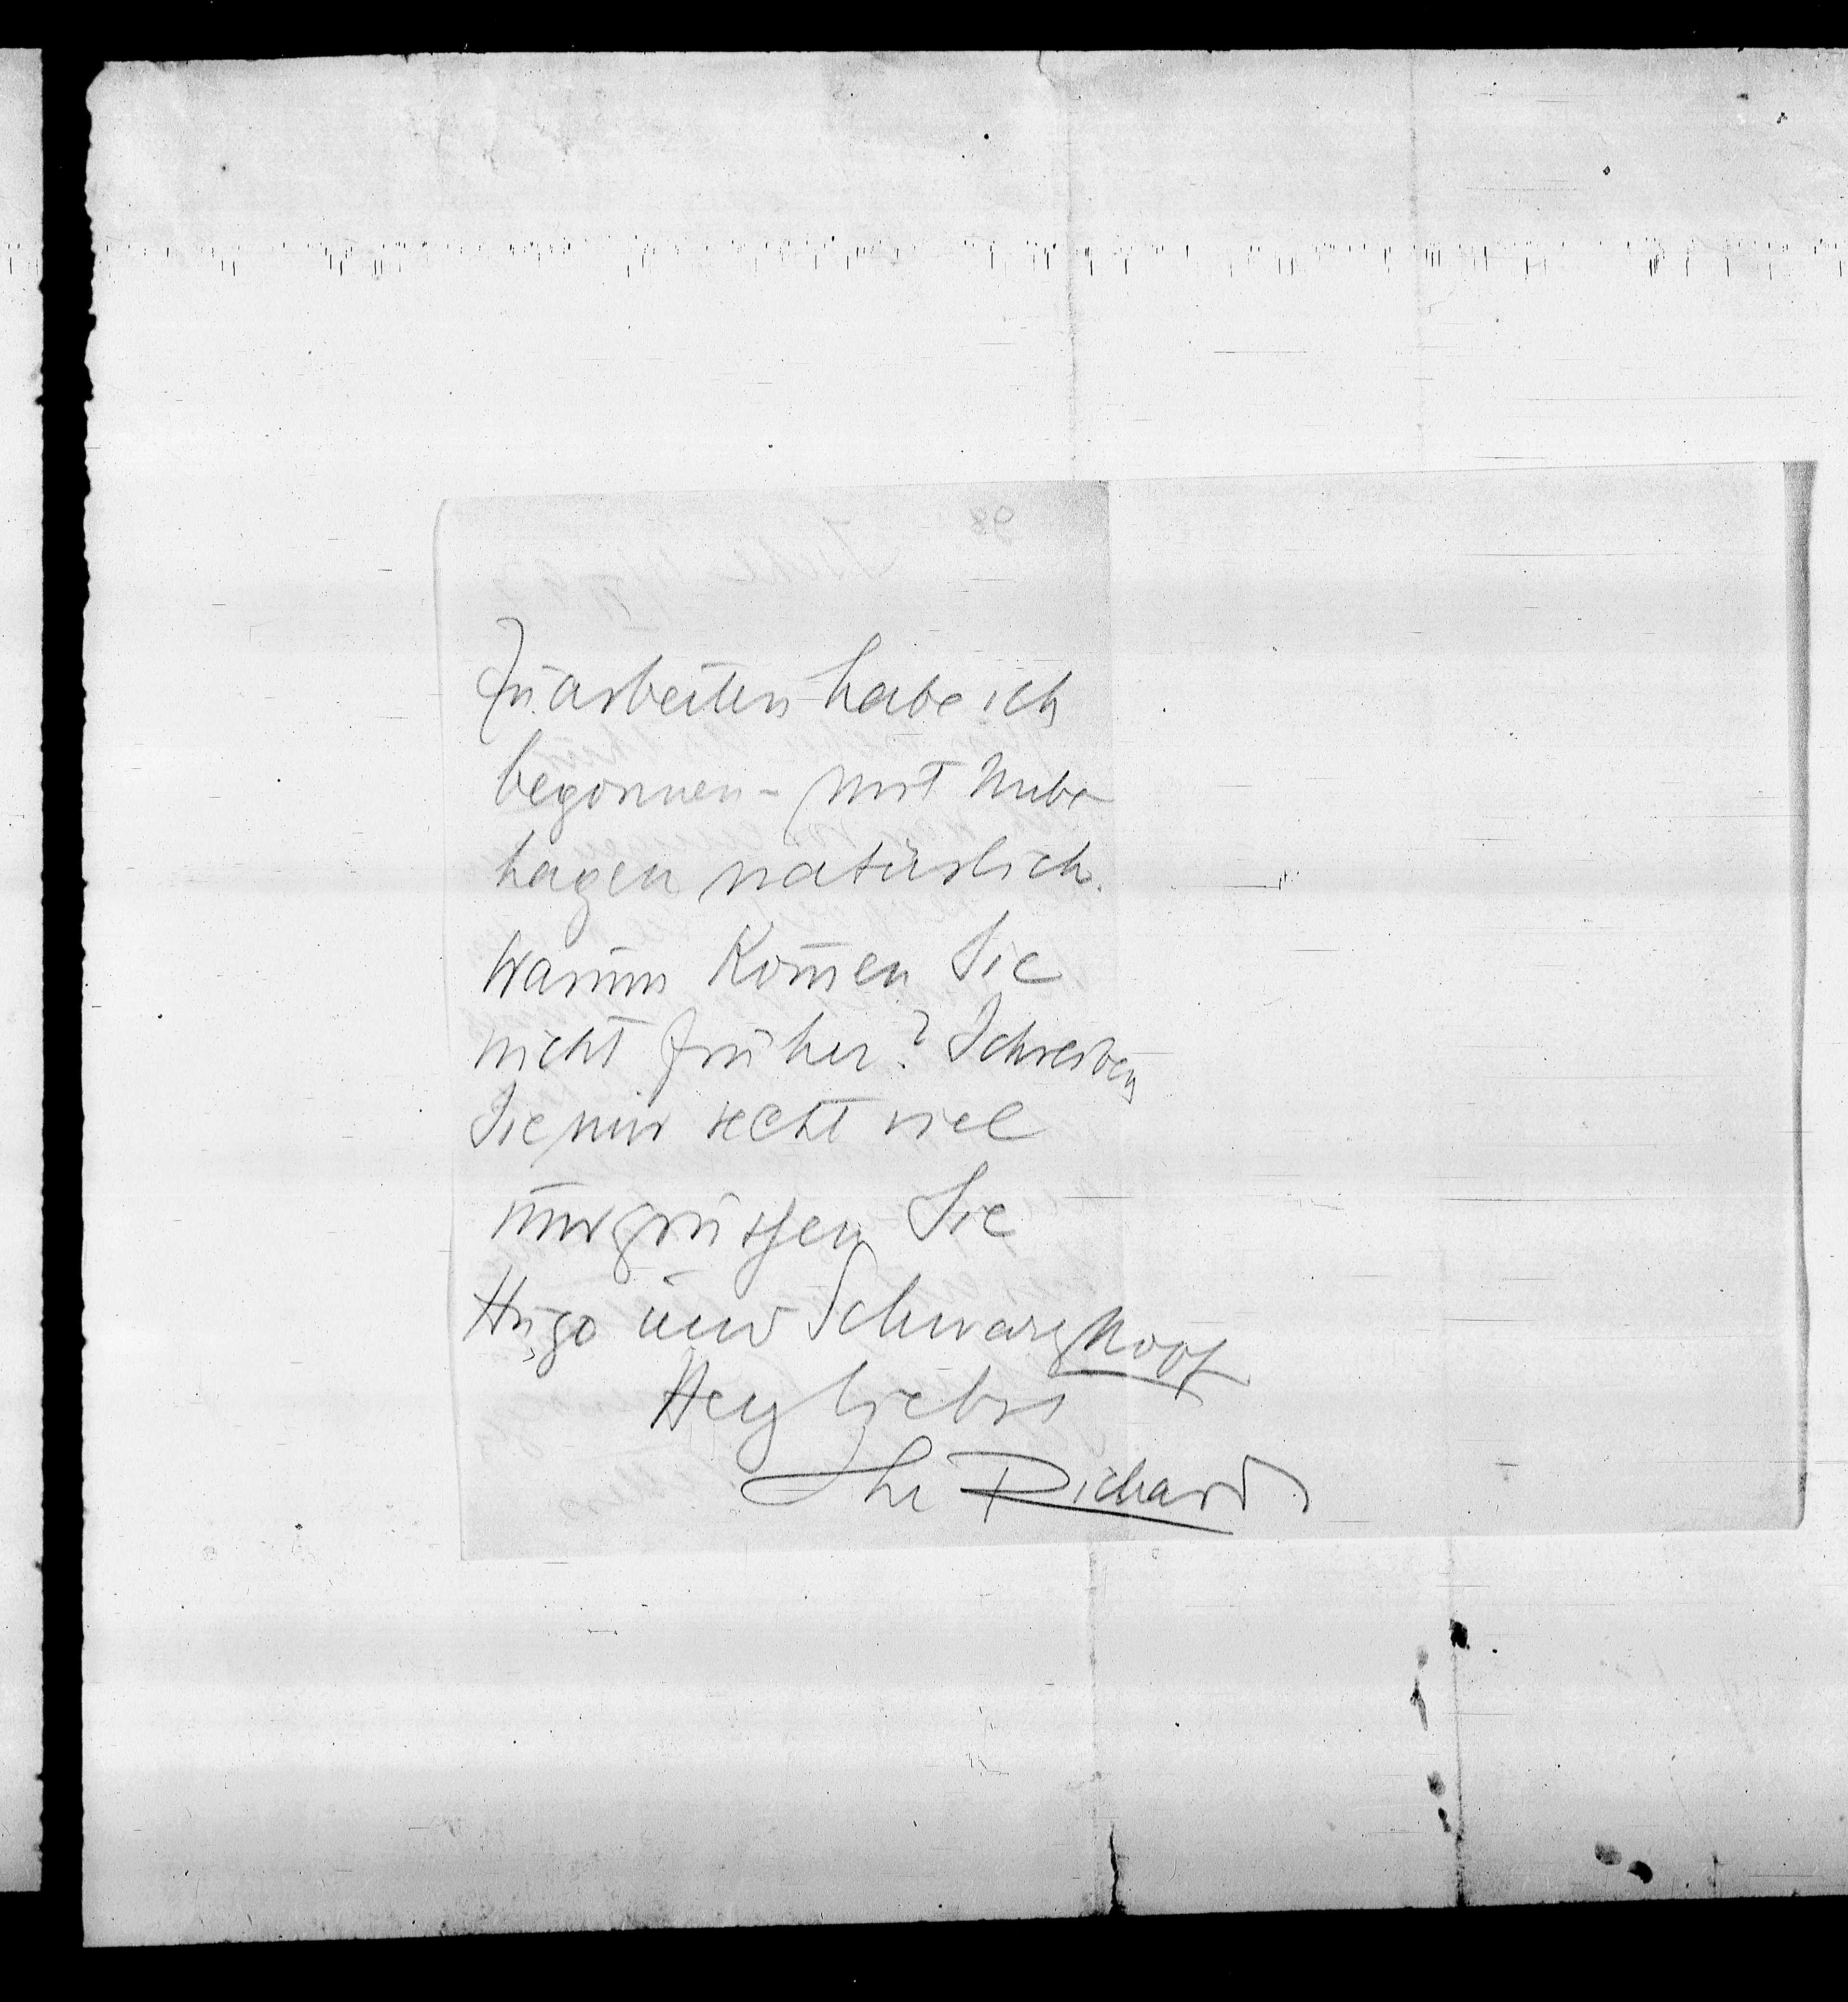 Zu arbeiten habe ich
begonnen – mit Unbe-
hagen natürlich.
Warum kom̄en Sie
nicht früher? Schreiben
Sie mir recht viel
und grüssen Sie
Hugo und Schwarzkopf
Herzlichst
Ihr Richard